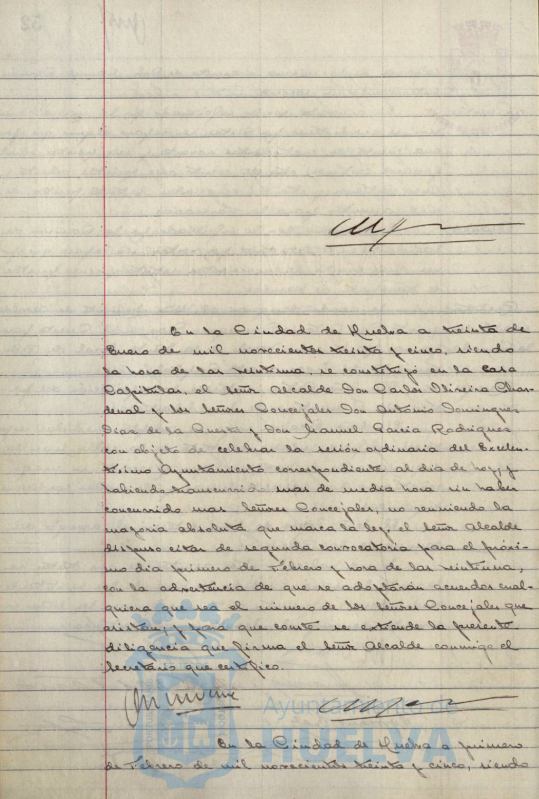 En la Ciudad de Huelva a treinta de
Enero de mil novecientos treinta y cinco, siendo
la hora de las veintiuna, se constituyó en la Casa
Capitular, el Señor Alcalde Don Carlos Oliveira Char-
denal y los Señores Concejales Don Antonio Dominguez
Diaz de la Cuesta y Don Manuel Garcia Rodriguez
con objeto de celebrar la sesión ordinaria del Excelen-
tisimo Ayuntamiento correspondiente al dia de hoy, y
habiendo transcurrido mas de media hora sin haber
concurrido mas Señores Concejales, no reuniendo la
mayoria absoluta que marca la ley, el Señor Alcalde
dispuso citar de segunda convocatoria para el próxi-
mo dia primero de Febrero y hora de las veintiuna,
con la advertencia de que se adoptarán acuerdos cual-
quiera que sea el número de los Señores Concejales que
asistan, y para que conste se extiende la presente
diligencia que firma el Señor Alcalde conmigo el
Secretario que certifico.
Ayuntamiento de
HUELVA
En la Ciudad de Huelva a primero
de Febrero de mil novecientos treinta y cinco, siendo